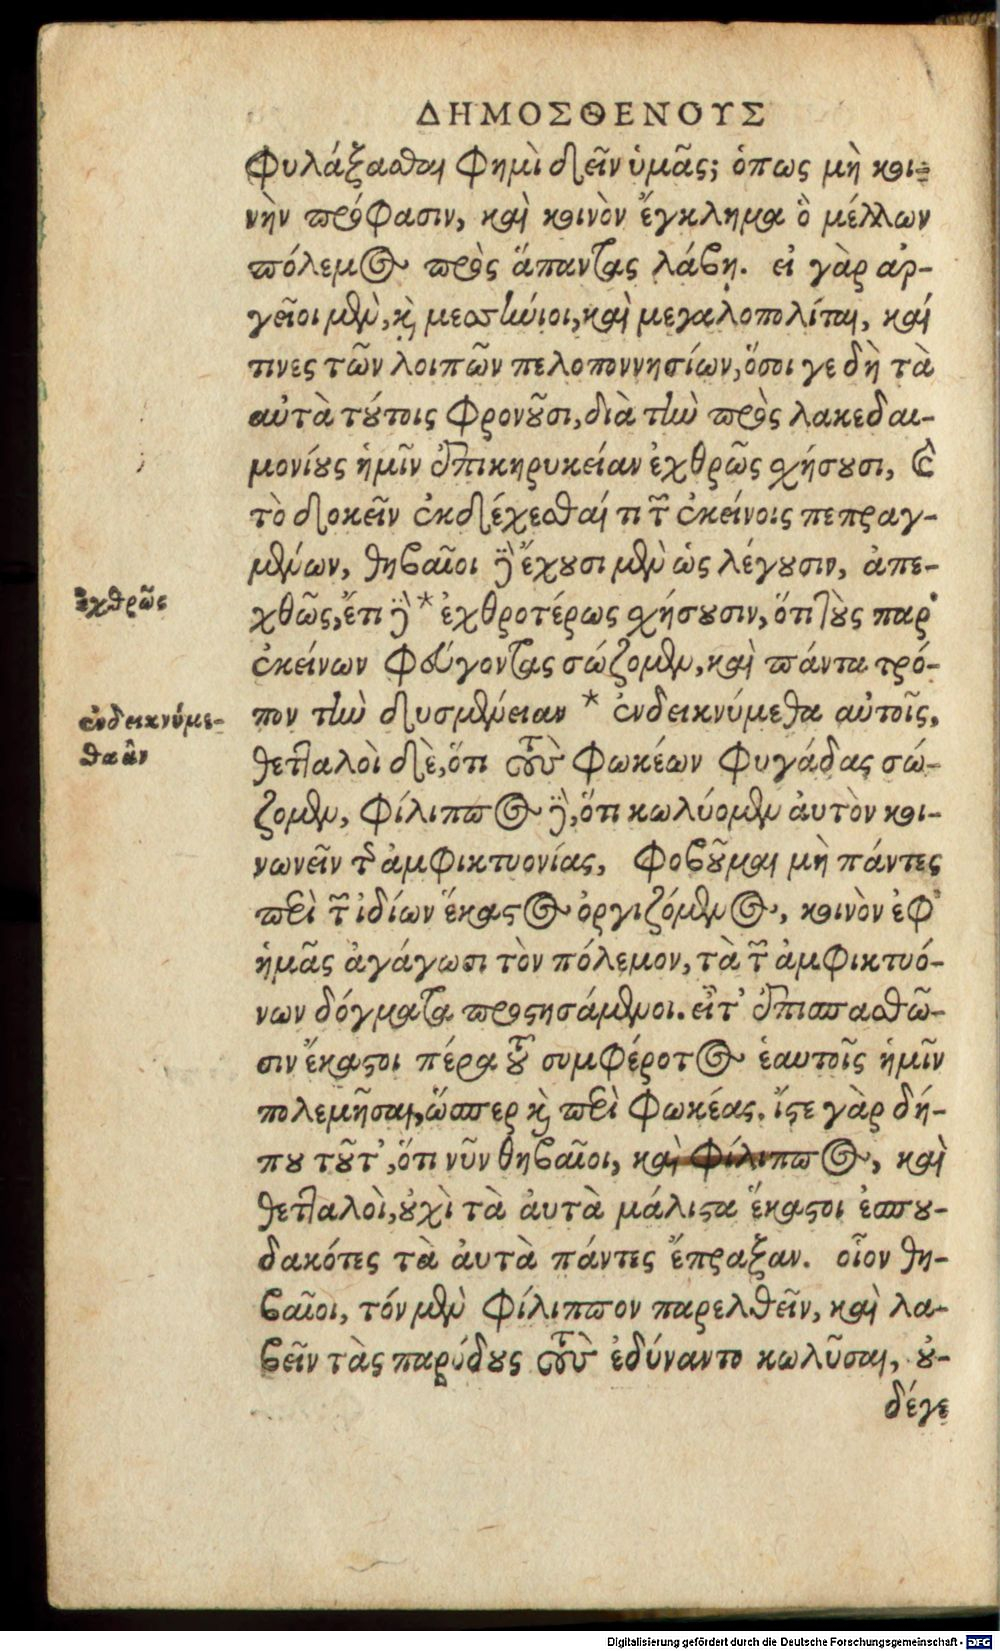 ΔΗΜΟΣΘΕΝΟΥΣ
φυλάξασθαι φημὶ δεῖν ὑμᾶς; ὁπως μὴ κοι-
νὴν πρόφασιν, καὶ κοινὸν ἔγκλημα ὃ μέλλων
πόλεμος πρὸς ἅπαντας λάβῃ. εἰ γὰρ ἀρ-
γεῖοι μὲν, καὶ μεσσήνιοι, καὶ μεγαλοπολίται, καί
τινες τῶν λοιπῶν πελοποννησίων, ὅσοι γε δὴ τὰ
αὐτὰ τούτοις φρονοῦσι, διὰ τὴν πρὸς λακεδαι-
μονίους ἡμῖν ἐπικηρυκείαν ἐχθρῶς σχήσουσι, καὶ
τὸ δοκεῖν ἐκδέχεσθαί τι τῶν ἐκείνοις πεπραγ-
μένων, θηβαῖοι δὲ ἔχουσι μὲν ὡς λέγουσιν, ἀπε-
χθῶς, ἔτι δὲ * ἐχθροτέρως σχήσουσιν, ὅτι τοὺς παρ'
ἐκείνων φεύγοντας σώζομεν, καὶ πάντα τρό-
πον τὴν δυσμένειαν * ἐνδεικνύμεθα αὐτοῖς,
θετταλοὶ δὲ, ὅτι τοὺς φωκέων φυγάδας σώ-
ζομεν, φίλιππος δὲ, ὅτι κωλύομεν ἀυτὸν κοι-
νωνεῖν τῆς ἀμφικτυονίας, φοβοῦμαι μὴ πάντες
περὶ τῶν ἰδίων ἕκαστος ὀργιζόμενος, κοινὸν ἐφ'
ἡμᾶς ἀγάγωσι τὸν πόλεμον, τὰ τῶν ἀμφικτυό-
νων δόγματα προστησάμενοι. εἶτ' ἐπισπασθῶ-
σιν ἕκαστοι πέρα τοῦ συμφέροντος ἑαυτοῖς ἡμῖν
πολεμῆσαι, ὥσπερ καὶ περὶ φωκέας. ἴστε γὰρ δή-
που τοῦτ', ὅτι νῦν θηβαῖοι, καὶ φίλιππος, καὶ
θετταλοὶ, οὐχὶ τὰ ἀυτὰ μάλιστα ἕκαστοι ἐσπου-
δακότες τὰ ἀυτὰ πάντες ἔπραξαν. οἷον θη-
βαῖοι, τόν μὲν φίλιππον παρελθεῖν, καὶ λα-
βεῖν τὰς παρόδους οὐκ ἐδύναντο κωλῦσαι, οὐ-
δέγε
ἐχθρῶς
ἐνδεικνύμε-
θα ἂν
Digitalisierung gefördert durch die Deutsche Forschungsgemeinschaft - DFG